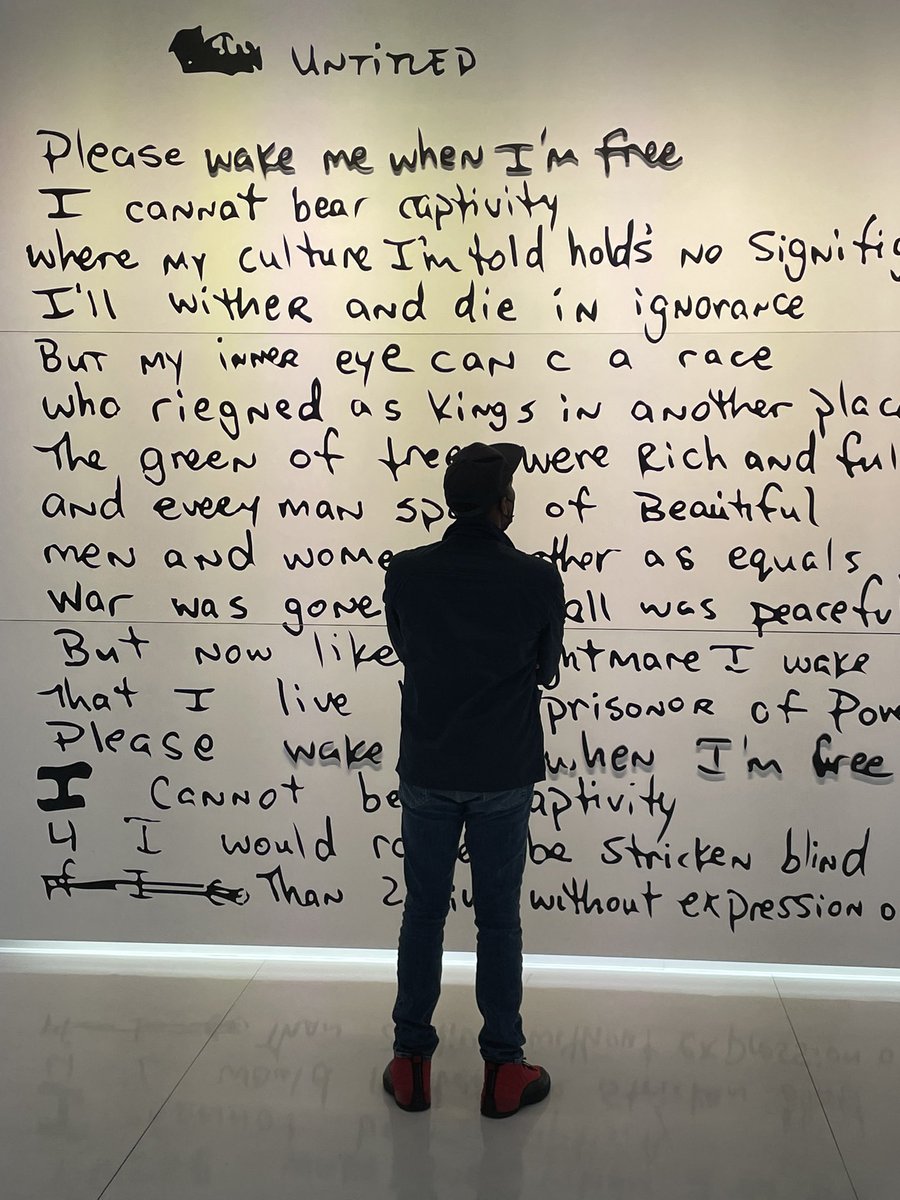 UNTITLED
Please wake me when I'm free
I cannot bear captivity
where my culture I'm told holds no Signifi
I'll wither and die in ignorance
But my inner eye can c a race
who riegned as kings in another plac
The green of were Rich and ful
and every man of Beautiful
men and as equals
War was gone all was peacefu
But now like I wake
That I live prisonor of Pow
Please wake when I'm free
I cannot
4 I would be stricken blind
Than 2 without expression o